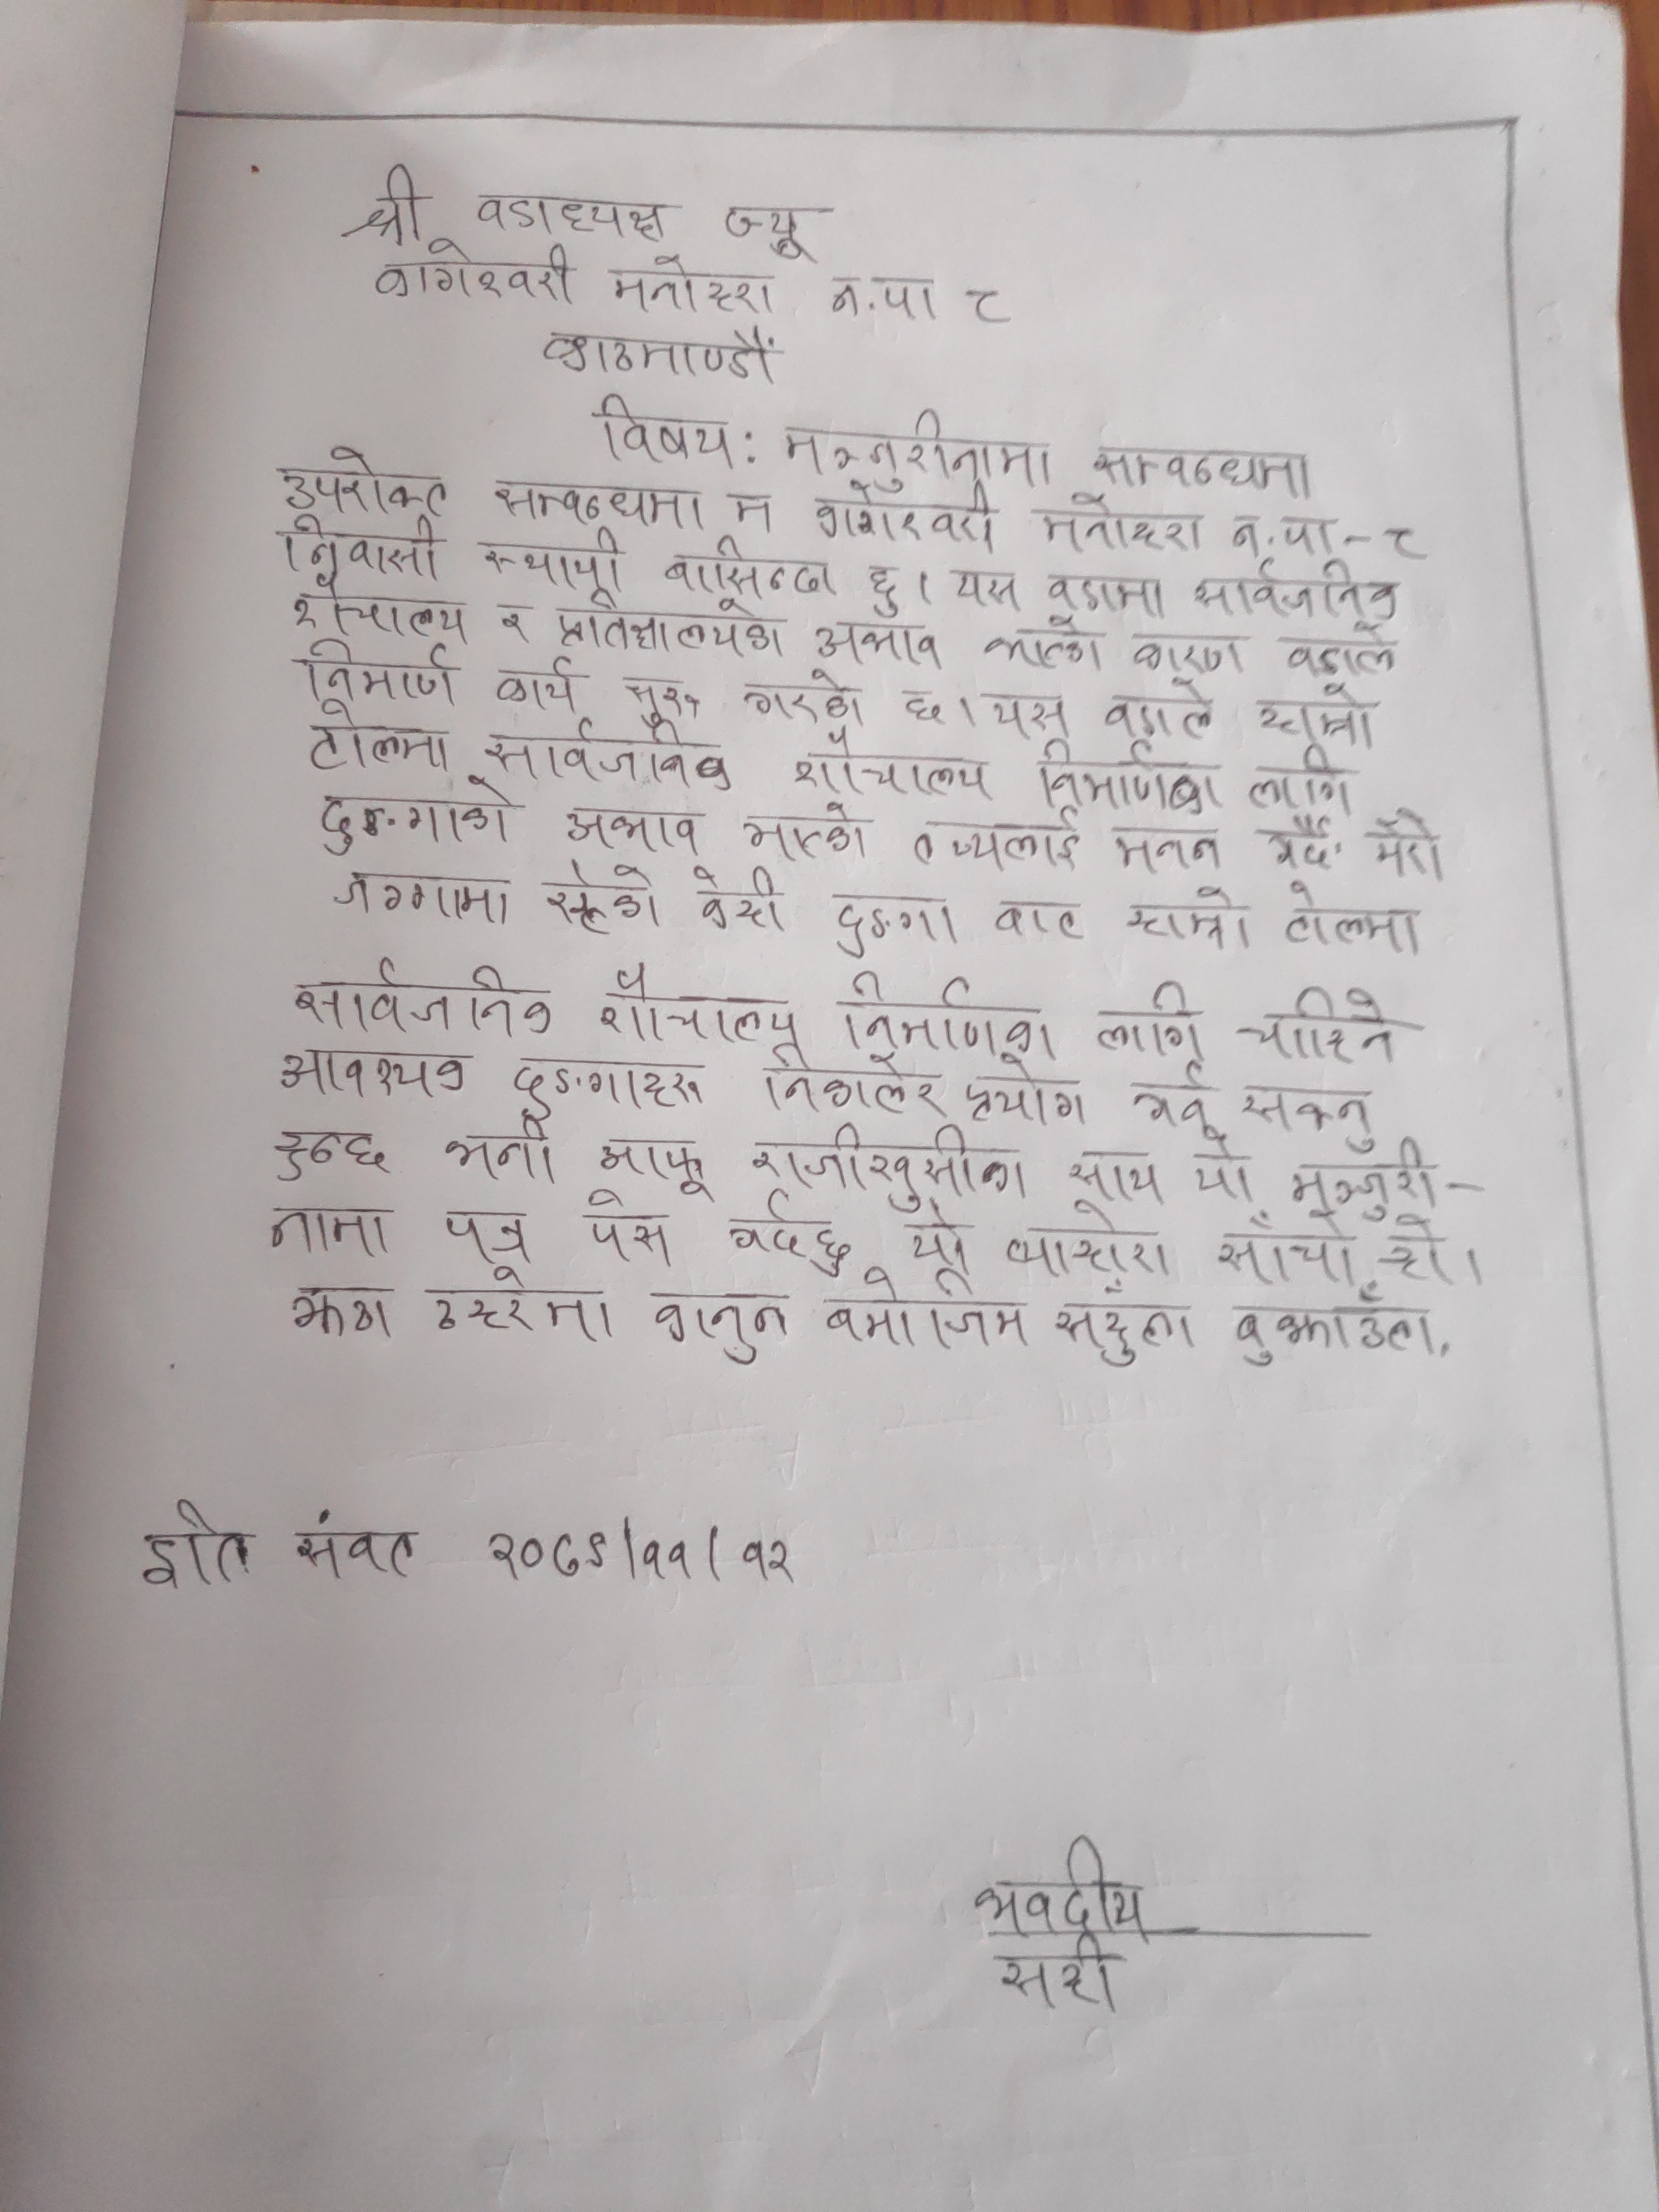 श्री वडाध्यक्ष ज्यू
कागेश्वरी मनोहरा न.पा ८
काठमाण्डौं
विषय: मञ्जुरीनामा सम्वन्धमा
उपरोक्त सम्वन्धमा म कागेश्वरी मनोहरा न.पा-८
निवासी स्थायी बासिन्दा हु। यस वडामा सार्वजनिक
शौचालय र प्रतिक्षालयको अभाव भएको कारण वडाले
निमार्ण कार्य सुरु गरेको छ। यस वडाले हाम्रो
टोलमा सार्वजनिक शौचालय निर्माणका लागि
ढुङगाको अभाव भएको तथ्यलाई मनन गर्दै मेरो
जग्गामा रहेको केही ढुङगा वाट हाम्रो टोलमा
सार्वजनिक शौचालय निर्माणका लागि चाहिने
आवश्यक ढुङगाहरु निकालेर प्रयोग गर्नु सक्नु
हुन्छ भनी आफू राजीखुसीका साथ यो मञ्जुरी-
नामा पत्र पेस गर्दछु यो व्याहोरा साँचो हो।
झुठा ठहरेमा कानुन बमोजिम सहुँला बुझाउँला.
इति संवत २०७९/११/१२
भवदीय
सही